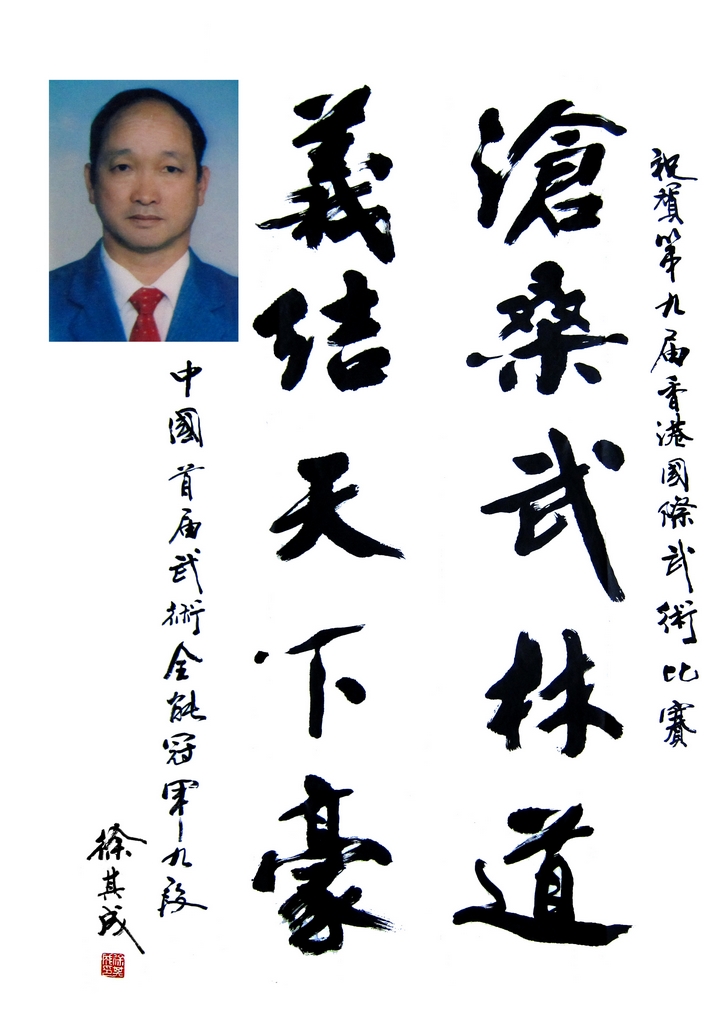 祝賀第九届香港國際武術比賽
滄桑武林道
義結天下豪
中國首届武術全能冠軍九段
徐其成